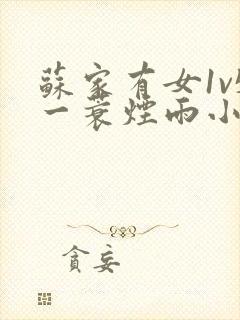 蘇家有女1v
一蓑煙雨小
貪妄